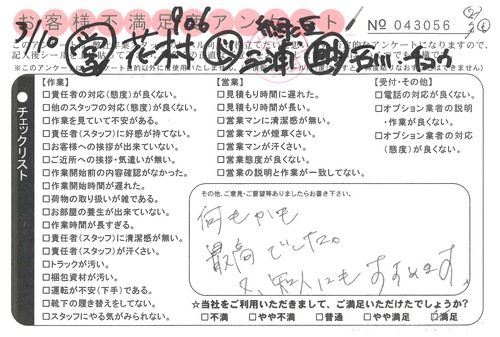 お客様不満足度アンケート
No 043056
3/10 営 佐村 906 三浦 緑営 助 石川
記入後シールを
(※このアンケートは
【作業】
□責任者の対応(態度)が良くない。
□他のスタッフの対応(態度)が良くない。
□作業を見ていて不安がある。
□責任者(スタッフ)に好感が持てない。
□お客様への挨拶が出来ていない。
□ご近所への挨拶・気遣いが無い。
□作業開始前の内容確認がなかった。
□作業開始時間が遅れた。
□荷物の取り扱いが雑である。
□お部屋の養生が出来ていない。
□作業時間が長すぎる。
□責任者(スタッフ)に清潔感が無い。
□責任者(スタッフ)が汗くさい。
□トラックが汚い。
□梱包資材が汚い。
□運転が不安(下手)である。
□靴下の履き替えをしてない。
□スタッフにやる気がみられない。
【営業】
□見積もり時間に遅れた。
□見積もり時間が長い。
□営業マンに清潔感が無い。
□営業マンが煙草くさい。
□営業マンが汗くさい。
□営業態度が良くない。
□営業の説明と作業が一致してない。
【受付・その他】
□電話の対応が良くない。
□オプション業者の説明
・作業が良くない。
□オプション業者の対応
(態度)が良くない。
チェックリスト
その他、ご意見・ご要望等ありましたらお書き下さい。
何もかも
最高でした。
又、知人にもすすめます。
☆当社をご利用いただきまして、ご満足いただけたでしょうか?
□不満 □やや不満 □普通 □やや満足 □満足